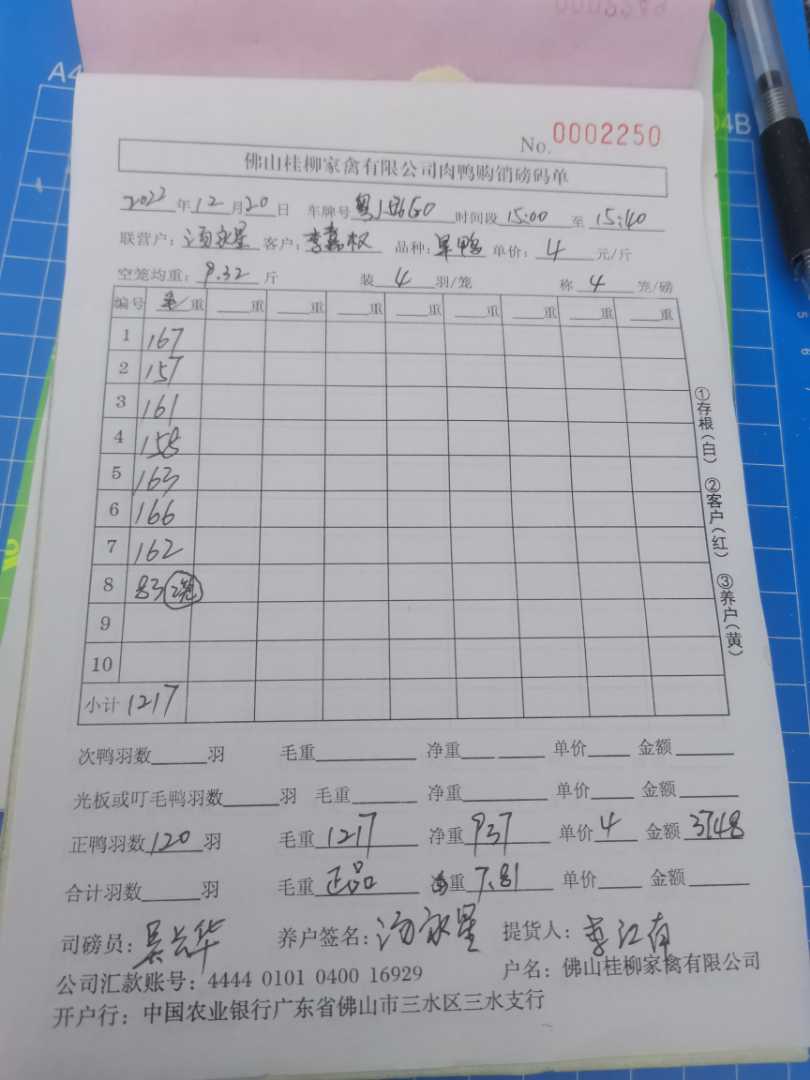 No. 0002250
佛山桂柳家禽有限公司肉鸭购销磅码单
2022年12月20日 车牌号 时间段 15:00 至 15:40
联营户:汤永星 客户:李嘉权 品种: 单价: 4 元/斤
空笼均重: 9.32 斤 装 4 羽/笼 称 4 笼/磅
编号 毛重 重 重 重 重 重 重 重 重
1 167
2 157
3 161
4 158
5 163
6 166
7 162
8 83
9
10
小计 1217
①存根(白) ②客户(红) ③养户(黄)
次鸭羽数 羽 毛重 净重 单价 金额
光板或叮毛鸭羽数 羽 毛重 净重 单价 金额
正鸭羽数 120 羽 毛重 1217 净重 937 单价 4 金额 3748
合计羽数 羽 毛重 正品 重 7.81 单价 金额
司磅员:吴兰华 养户签名:汤永星 提货人:李江有
公司汇款账号:4444 0101 0400 16929 户名:佛山桂柳家禽有限公司
开户行:中国农业银行广东省佛山市三水区三水支行